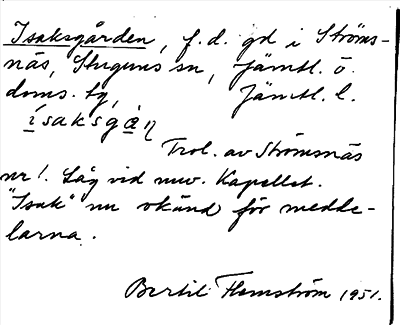 Isaksgården, f.d. gd i Ströms-
näs, Stuguns sn, Jämtl. ö.
doms. tg, Jämtl. l.
ísaksgàn
Trol. av Strömsnäs
nr 1. Låg vid nuv. Kapellet.
"Isak" nu okänd för medde-
larna.
Bertil Flemström 1951.